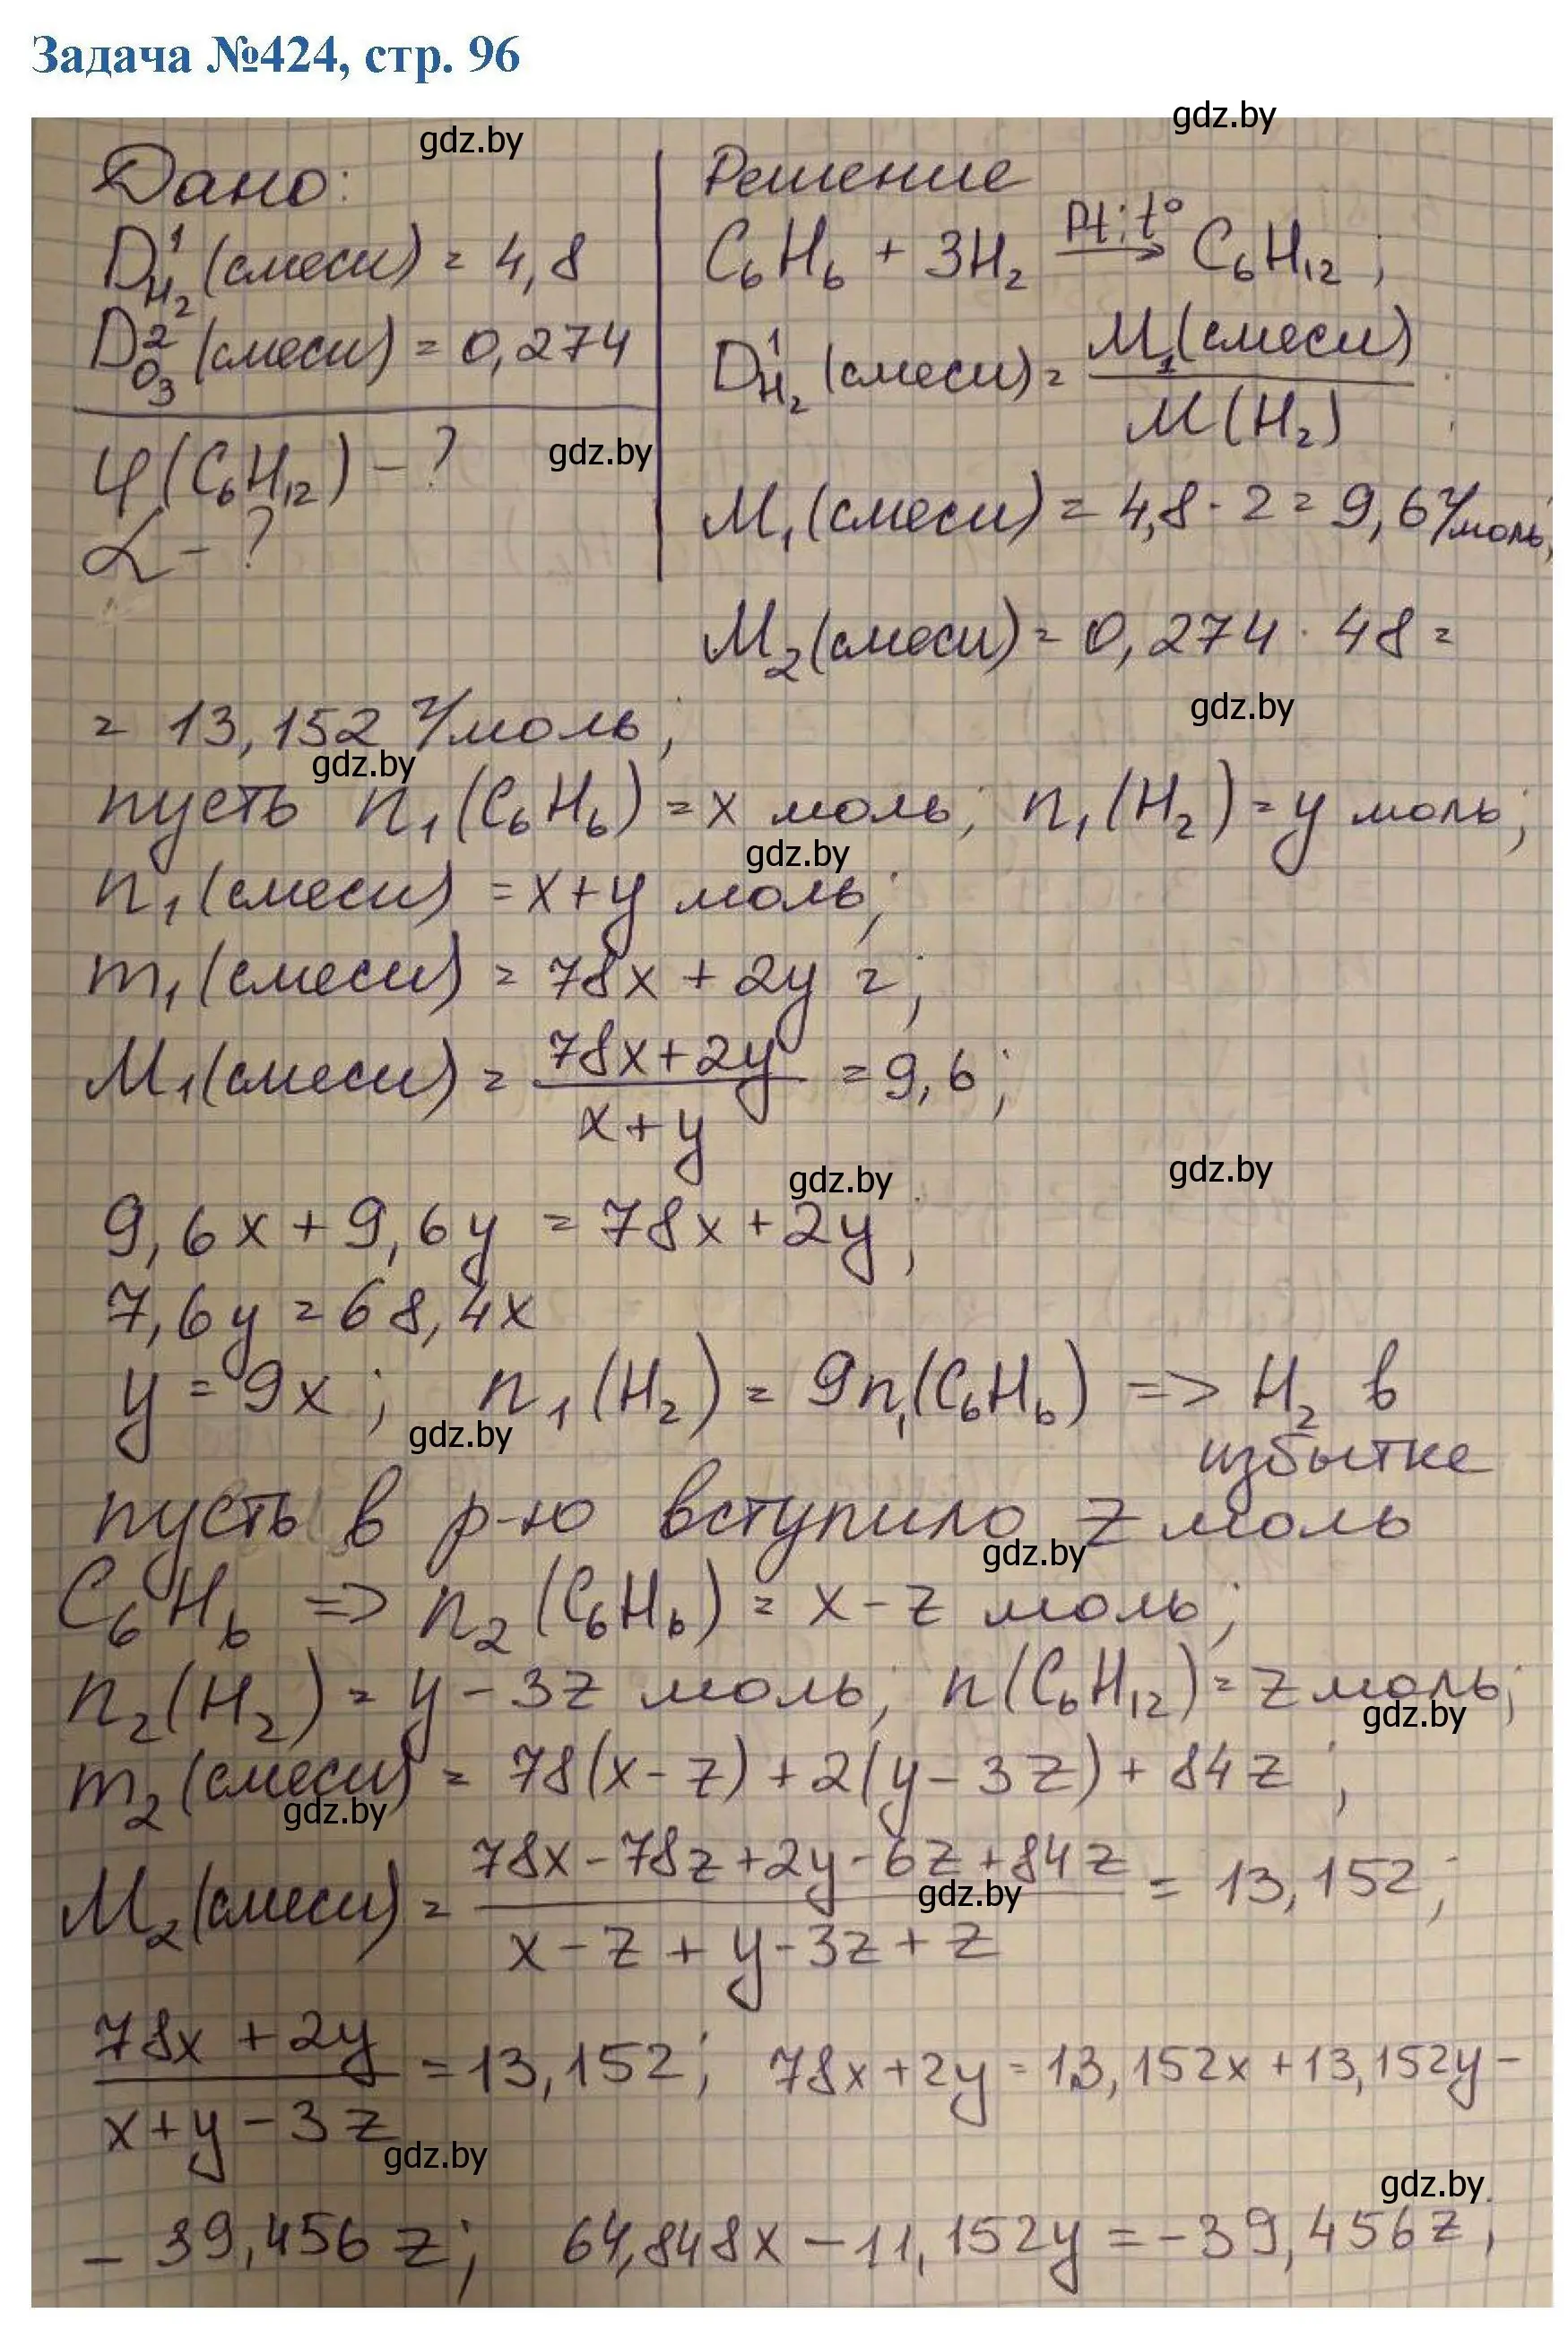 Задача №424, стр. 96
gdz.by
gdz.by
Дано:
D¹H₂(смеси) = 4,8
D²O₃(смеси) = 0,274
φ(C₆H₁₂) - ?
gdz.by
α - ?
Решение
C₆H₆ + 3H₂ →(Pt; t°) C₆H₁₂;
D¹H₂(смеси) = M₁(смеси) / M(H₂)
M₁(смеси) = 4,8 · 2 = 9,6 г/моль;
M₂(смеси) = 0,274 · 48 =
gdz.by
= 13,152 г/моль;
gdz.by
пусть n₁(C₆H₆) = x моль; n₁(H₂) = y моль;
gdz.by
n₁(смеси) = x+y моль;
m₁(смеси) = 78x + 2y г;
M₁(смеси) = (78x+2y) / (x+y) = 9,6;
gdz.by
gdz.by
9,6x + 9,6y = 78x + 2y;
7,6y = 68,4x
y = 9x; n₁(H₂) = 9n₁(C₆H₆) => H₂ в
gdz.by
избытке
пусть в р-ю вступило z моль
gdz.by
C₆H₆ => n₂(C₆H₆) = x - z моль;
n₂(H₂) = y - 3z моль; n(C₆H₁₂) = z моль;
gdz.by
m₂(смеси) = 78(x-z) + 2(y-3z) + 84z;
gdz.by
M₂(смеси) = (78x - 78z + 2y - 6z + 84z) / (x - z + y - 3z + z) = 13,152;
gdz.by
(78x + 2y) / (x+y-3z) = 13,152; 78x + 2y = 13,152x + 13,152y -
gdz.by
gdz.by
- 39,456z; 64,848x - 11,152y = -39,456z;